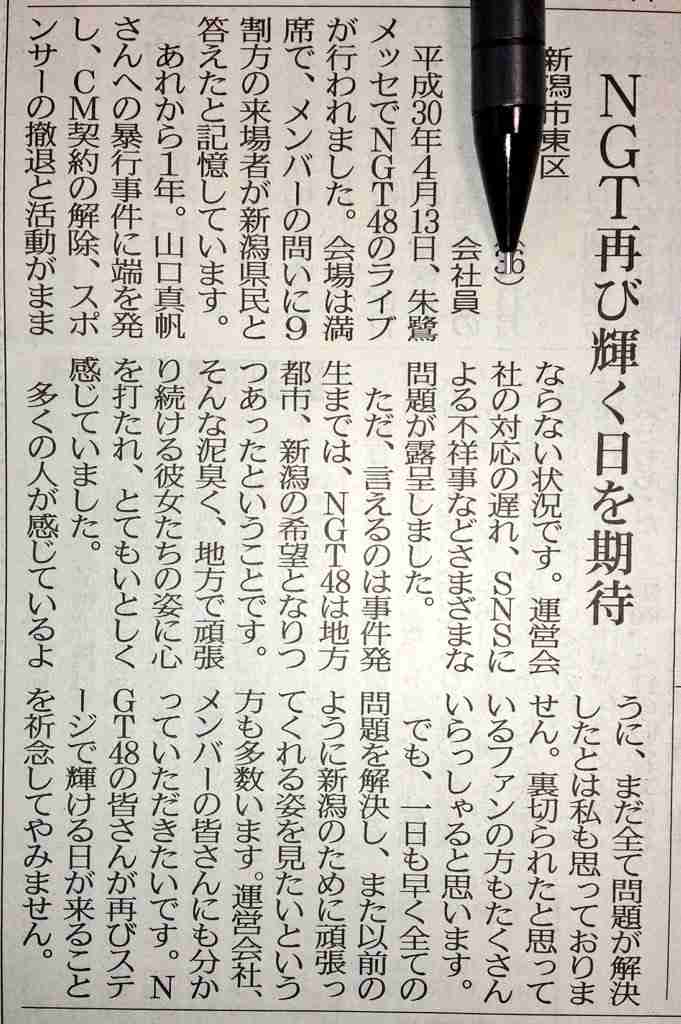 NGT再び輝く日を期待
新潟市東区
会社員
(36)
平成30年4月13日、朱鷺
メッセでNGT48のライブ
が行われました。会場は満
席で、メンバーの問いに9
割方の来場者が新潟県民と
答えたと記憶しています。
あれから1年。山口真帆
さんへの暴行事件に端を発
し、CM契約の解除、スポ
ンサーの撤退と活動がまま
ならない状況です。運営会
社の対応の遅れ、SNSに
よる不祥事などさまざまな
問題が露呈しました。
ただ、言えるのは事件発
生までは、NGT48は地方
都市、新潟の希望となりつ
つあったということです。
そんな泥臭く、地方で頑張
り続ける彼女たちの姿に心
を打たれ、とてもいとしく
感じていました。
多くの人が感じているよ
うに、まだ全て問題が解決
したとは私も思っておりま
せん。裏切られたと思って
いるファンの方もたくさん
いらっしゃると思います。
でも、一日も早く全ての
問題を解決し、また以前の
ように新潟のために頑張っ
てくれる姿を見たいという
方も多数います。運営会社、
メンバーの皆さんにも分か
っていただきたいです。N
GT48の皆さんが再びステ
ージで輝ける日が来ること
を祈念してやみません。